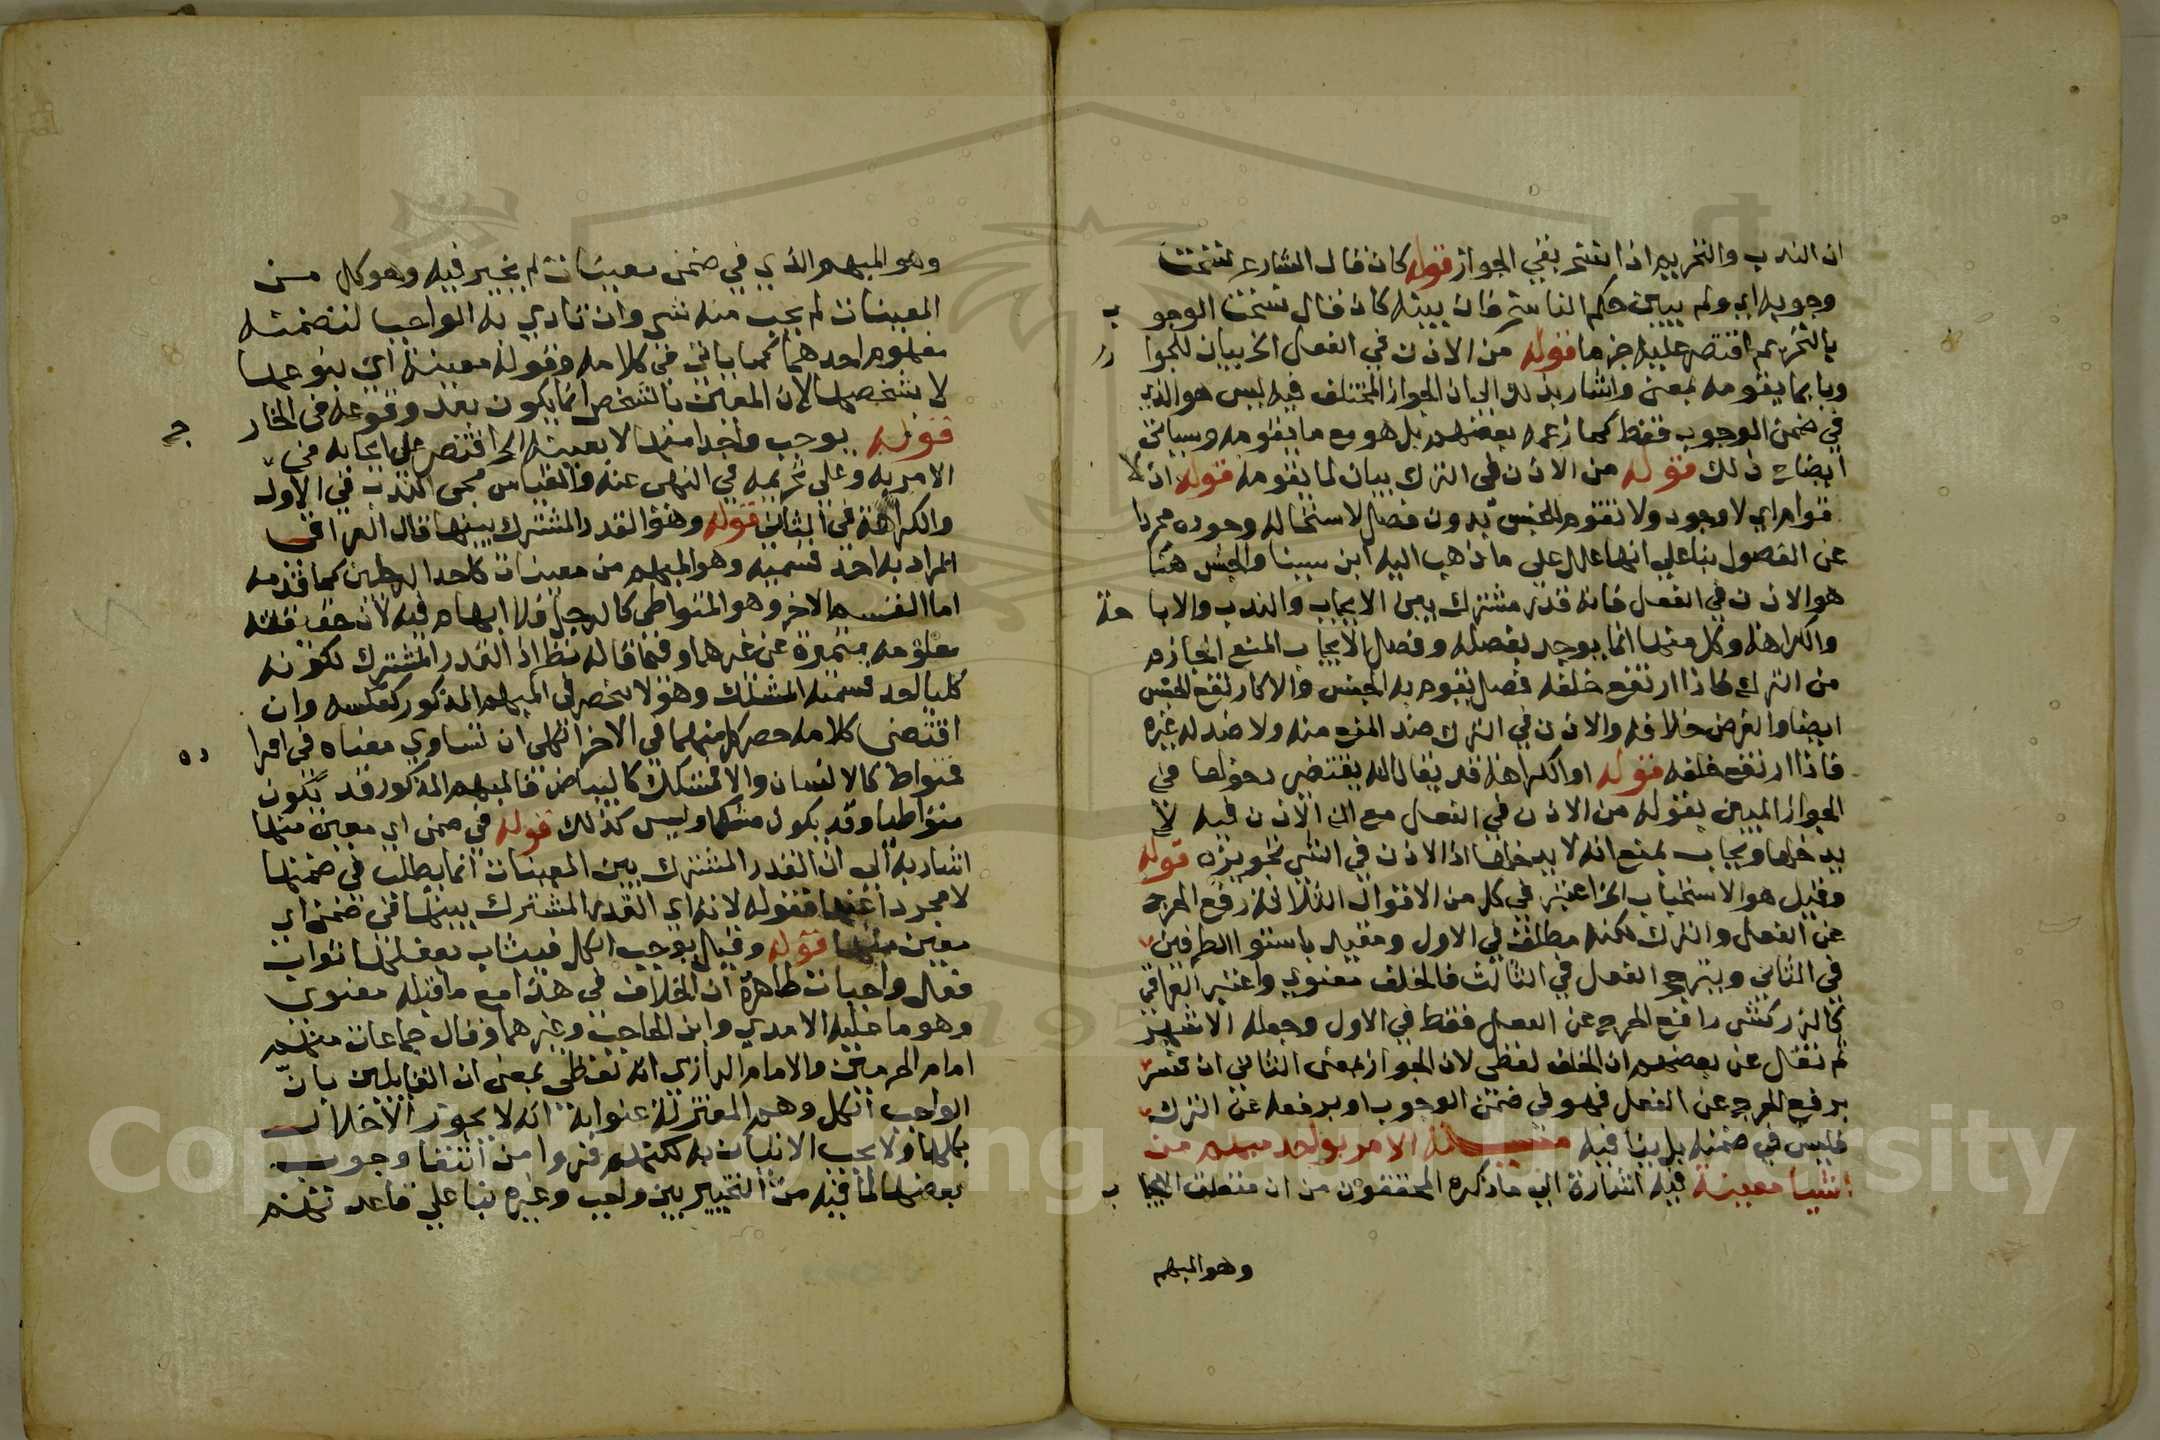 ان الندب والتحريم اذا انتسخ بقي الجواز قوله كان قال الشارع نسخت
وجوبه اي ولم يبين حكم الناسخ فان بينه كان قال نسخت الوجوب
بالتحريم اقتصر عليه جزما قوله من الاذن في الفعل الخ بيان للجواز
وبا بما يقومه بمعنى واشار بذلك الى ان الجواز المختلف فيه ليس هو الذي
في ضمن الوجوب فقط كما زعمه بعضهم بل هو مع ما يقومه وسياتي
ايضاح ذلك قوله من الاذن في الترك بيان لما يقومه قوله اذ لا
قوام اي لا وجود ولا تقوم للجنس بدون فصل لاستحالة وجوده مجردا
عن الفصول بنا على انها علل على ما ذهب اليه ابن سينا والجنس هنا
هو الاذن في الفعل فانه قدر مشترك بين الايجاب والندب والاباحة
والكراهة وكل منها انما يوجد بفصله وفصل الايجاب المنع الجازم
من الترك فاذا ارتفع خلفه فصل يقوم به الجنس والا لارتفع الجنس
ايضا والفرض خلافه والاذن في الترك ضد المنع منه ولا ضد له غيره
فاذا ارتفع خلفه قوله او الكراهة قد يقال انه يقتضي دخولها في
الجواز المبين بقوله من الاذن في الفعل مع ان الاذن فيه لا
يدخلها ويجاب بمنع انه لا يدخلها اذ الاذن في الشي تجويزه قوله
وقيل هو الاستحباب الخ اعتبر في كل من الاقوال الثلاثة رفع الحرج
عن الفعل والترك لكنه مطلق في الاول ومقيد باستوا الطرفين
في الثاني وبترجح الفعل في الثالث فالخلف معنوي واعتبر العراقي
كالزركشي رافع الحرج عن الفعل فقط في الاول وجعله الاشهر
ثم نقل عن بعضهم ان الخلف لفظي لان الجواز بمعنى الثاني ان فسر
برفع الحرج عن الفعل فهو في ضمن الوجوب او برفعه عن الترك
فليس في ضمنه بل ينافيه مسئلة الامر بواحد مبهم من
اشيا معينة فيه اشارة الى ما ذكره المحققون من ان متعلق الايجاب
وهو المبهم
وهو المبهم الذي في ضمن معينات لم يخير فيه وهو كل من
المعينات لم يجب منه شي وان تادي به الواجب لتضمنه
مفهوم احدهما كما ياتي في كلامه وقوله معينة اي بنوعها
لا بشخصها لان المعين بالشخص انما يكون بعد وقوعه في الخارج
قوله يوجب واحدا منها لا بعينه الخ اقتصر على ايجابه في
الامر به وعلى تحريمه في النهي عنه والقياس مجي الندب في الاول
والكراهة في الثاني قوله وهو القدر المشترك بينها قال العراقي
المراد به احد قسميه وهو المبهم من معينات كاحد الرجلين كما قدمه
اما القسم الاخر وهو المتواطي كالرجل فلا ابهام فيه لان حقيقته
معلومة متميزة عن غيرها وفيما قاله نظر اذ القدر المشترك لكونه
كليا احد قسميه المشكك وهو لا ينحصر في المبهم المذكور كعكسه وان
اقتضى كلامه حصر كل منهما في الاخر الكلي ان تساوي معناه في افراده
فمتواط كالانسان والا فمشكك كالبياض فالمبهم المذكور قد يكون
متواطيا وقد يكون مشككا وليس كذلك قوله في ضمن اي معين منها
اشار به الى ان القدر المشترك بين المعينات انما يطلب في ضمنها
لا مجردا عنها فقوله لانه اي القدر المشترك بينها في ضمن اي
معين منها قوله وقيل يوجب الكل فيثاب بفعلها ثواب
فعل واجبات ظاهره ان الخلاف في هذا مع ما قبله معنوي
وهو ما عليه الامدي وابن الحاجب وغيرهما وقال جماعات منهم
امام الحرمين والامام الرازي انه لفظي بمعنى ان القايلين بان
الواجب الكل وهم المعتزلة عنوا به انه لا يجوز الاخلال
بكلها ولا يجب الاتيان به لكنهم فروا من انتفا وجوب
بعضها لما فيه من التخيير بين واجب وغيره بنا على قاعدتهم